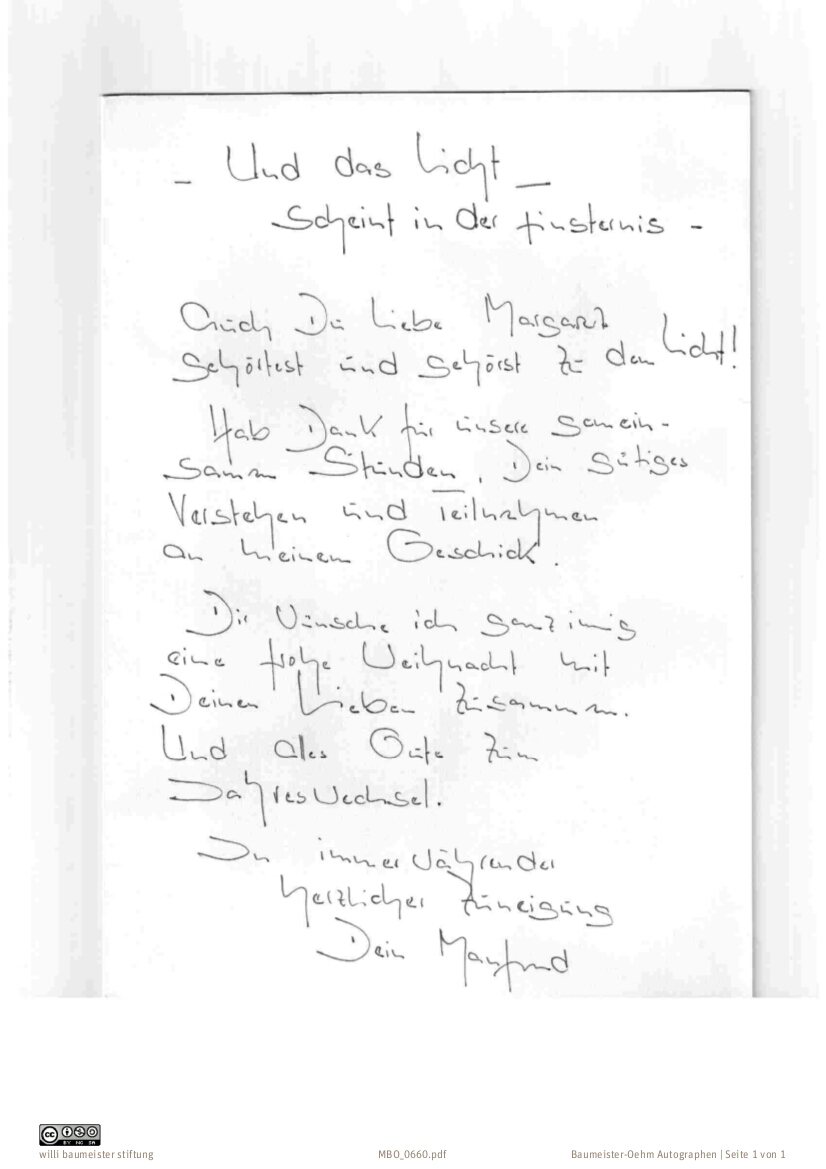 - Und das Licht -
scheint in der Finsternis -
Auch Du liebe Margaret
gehörtest und gehörst zu dem Licht!
Hab Dank für unsere gemein-
samen Stunden, Dein gütiges
Verstehen und Teilnehmen
an meinem Geschick.
Dir wünsche ich ganz innig
eine frohe Weihnacht mit
Deinen Lieben zusammen.
Und alles Gute zum
Jahreswechsel.
In immerwährender
herzlicher Zuneigung
Dein Manfred
CC BY NC SA
willi baumeister stiftung
MBO_0660.pdf
Baumeister-Oehm Autographen | Seite 1 von 1